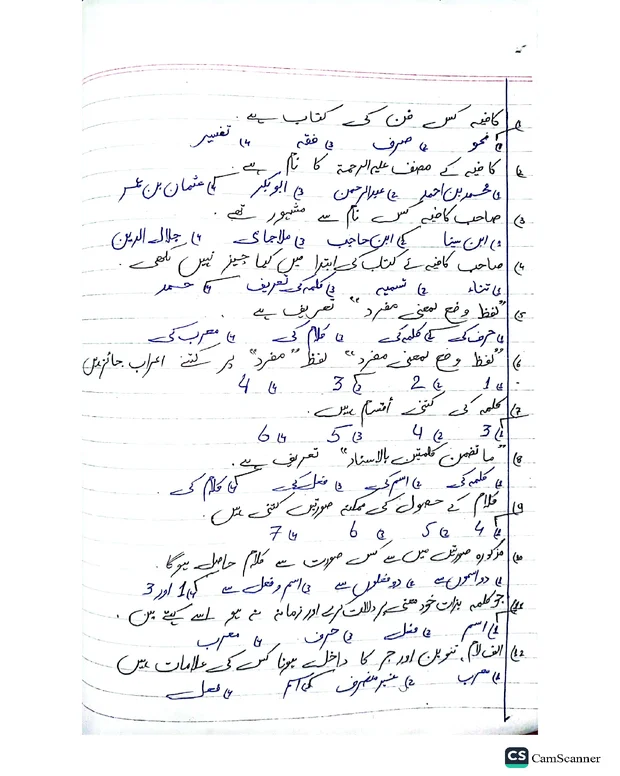 1) کافیہ کس فن کی کتاب ہے۔
1) نحو 2) صرف 3) فقہ 4) تفسیر
2) کافیہ کے مصنف علیہ الرحمۃ کا نام ہے۔
1) محمد بن احمد 2) عبدالرحمن 3) ابوبکر 4) عثمان بن عمر
3) صاحب کافیہ کس نام سے مشہور تھے۔
1) ابن سینا 2) ابن حاجب 3) ملا جامی 4) جلال الدین
4) صاحب کافیہ نے کتاب کی ابتدا میں کیا چیز نہیں لکھی۔
1) ثناء 2) تسمیہ 3) کلمہ کی تعریف 4) حمد
5) "لفظ وضع لمعنی مفرد" تعریف ہے۔
1) حرف کی 2) کلمہ کی 3) کلام کی 4) معرب کی
6) "لفظ وضع لمعنی مفرد" لفظ "مفرد" پر کتنے اعراب جائز ہیں
1) 1 2) 2 3) 3 4) 4
7) کلمہ کی کتنی أقسام ہیں۔
1) 3 2) 4 3) 5 4) 6
8) "ما تضمن کلمتین بالاسناد" تعریف ہے۔
1) کلمہ کی 2) اسم کی 3) فعل کی 4) کلام کی
9) کلام کے حصول کی ممکنہ صورتیں کتنی ہیں۔
1) 4 2) 5 3) 6 4) 7
10) مذکورہ صورتوں میں سے کس صورت سے کلام حاصل ہوگا۔
1) دو اسموں سے 2) دو فعلوں سے 3) اسم و فعل سے 4) 1 اور 3
11) جو کلمہ بذات خود معنی پر دلالت کرے اور زمانہ نہ ہو اسے کہتے ہیں۔
1) اسم 2) فعل 3) حرف 4) معرب
12) الف لام، تنوین اور جر کا داخل ہونا کس کی علامات ہیں
1) معرب 2) غیر منصرف 3) اسم 4) فعل
CS CamScanner